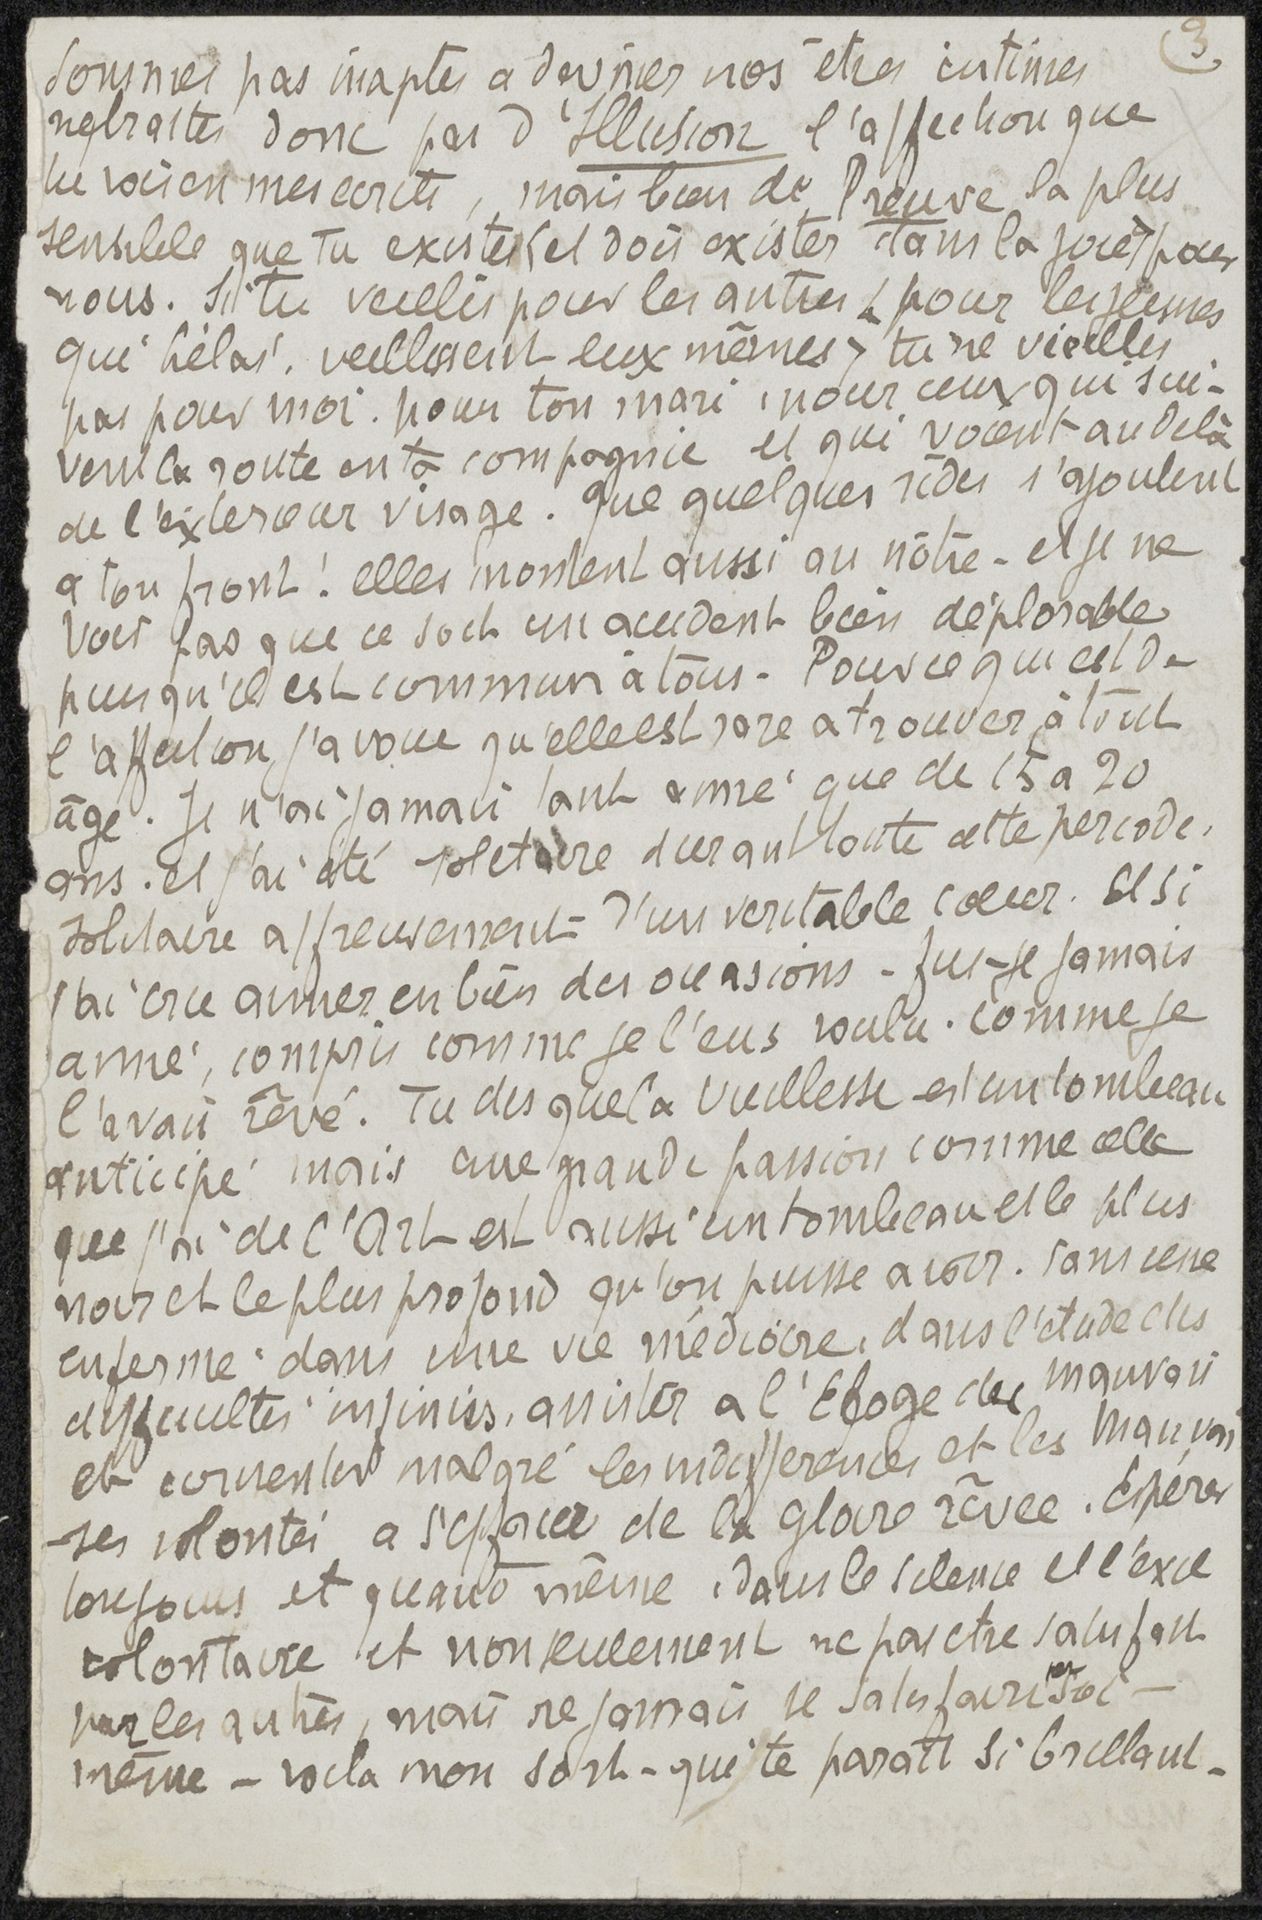 3
sommes pas inaptes a deviner nos êtres intimes
ne traites donc pas d'Illusion l'affection que
tu vois en mes ecrits, mais bien de Preuve la plus
sensible que tu existes (et dois exister dans la joie) pour
nous. Si tu vieillis pour les autres, pour les jeunes
qui hélas, vieillissent eux mêmes, tu ne vieillis
pas pour moi. pour ton mari, pour ceux qui sui-
vent la route en ta compagnie et qui voient au delà
de l'exterieur visage. Que quelques rides s'ajoutent
a ton front! elles montent aussi au nôtre - et je ne
vois pas que ce soit un accident bien déplorable
puisqu'il est commun à tous - Pour ce qui est de
l'affection j'avoue qu'elle est rare a trouver, à tout
âge. Je n'ai jamais tant aimé que de 15 a 20
ans. et j'ai été solitaire durant toute cette periode.
solitaire affreusement - d'un veritable coeur. Et si
j'ai cru aimer en bien des occasions - fus-je jamais
aimé, compris comme je l'eus voulu. comme je
l'avais rêvé. Tu dis que la vieillesse est un tombeau
anticipé mais une grande passion comme celle
que j'ai de l'Art est aussi un tombeau et le plus
noir et le plus profond qu'on puisse avoir. sans cesse
enfermé dans une vie médiocre, dans l'étude des
difficultés infinies, assister a l'Eloge des mauvais
et consentir malgré les indifferences et les mauvai
-ses volontés a s'efforcer de la gloire rêvée. Espérer
toujours et quand même, dans le silence et l'exil
volontaire et non seulement ne pas etre satisfait
par les autres, mais ne jamais se satisfaire soi-
même - voila mon sort - qui te parait si brillant -